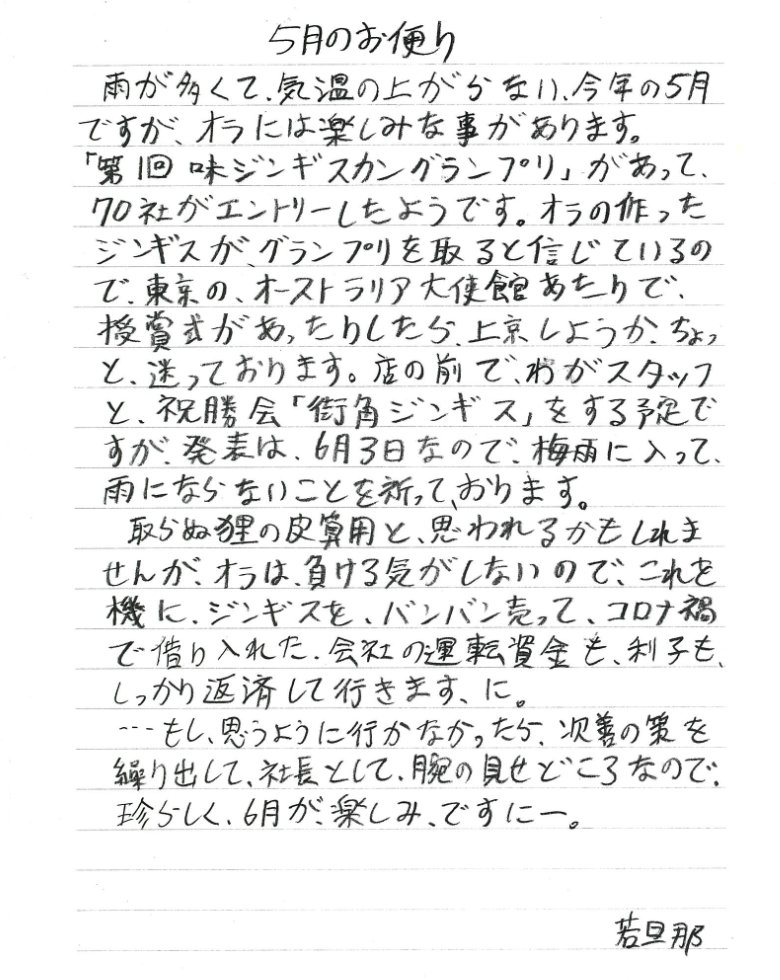 5月のお便り
雨が多くて、気温の上がらない、今年の5月
ですが、オラには楽しみな事があります。
「第1回 味ジンギスカングランプリ」があって、
70社がエントリーしたようです。オラの作った
ジンギスが、グランプリを取ると信じているの
で、東京の、オーストラリア大使館あたりで、
授賞式があったりしたら、上京しようか、ちょっ
と、迷っております。店の前で、わがスタッフ
と、祝勝会「街角ジンギス」をする予定で
すが、発表は、6月3日なので、梅雨に入って、
雨にならないことを祈って、おります。
取らぬ狸の皮算用と、思われるかもしれま
せんが、オラは、負ける気がしないので、これを
機に、ジンギスを、バンバン売って、コロナ禍
で借り入れた、会社の運転資金も、利子も、
しっかり返済して行きます、に。
…もし、思うように行かなかったら、次善の策を
繰り出して、社長として、腕の見せどころなので、
珍らしく、6月が、楽しみ、ですにー。
若旦那